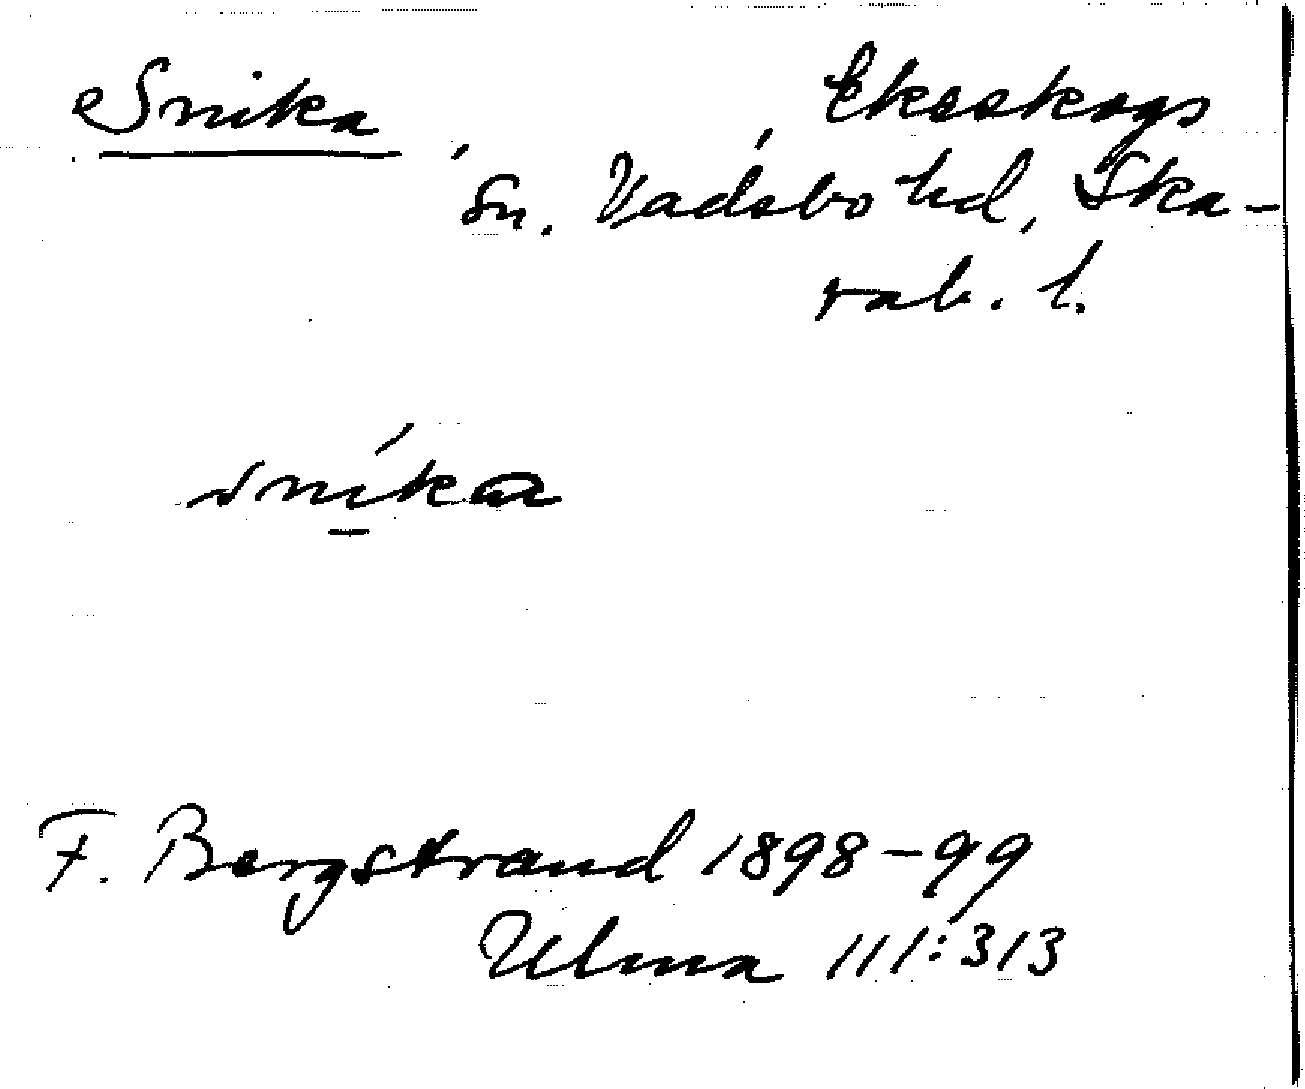 Snika Ekeskogs
sn. Vadsbo hd, Ska-
rab. l.
snika
F. Bergstrand 1898-99
Ulma 111:313